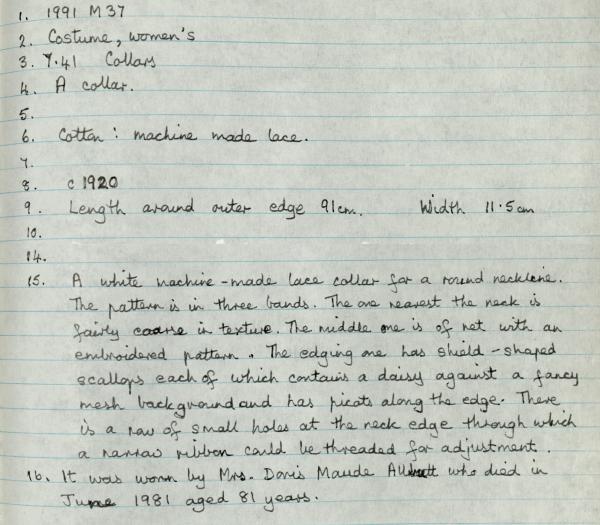 1. 1991 M 37
2. Costume, women's
3. 7.41 Collars
4. A collar.
5.
6. Cotton: machine made lace.
7.
8. c 1920
9. Length around outer edge 91cm. Width 11.5cm
10.
14.
15. A white machine-made lace collar for a round neckline.
The pattern is in three bands. The one nearest the neck is
fairly coarse in texture. The middle one is of net with an
embroidered pattern. The edging one has shield-shaped
scallops each of which contains a daisy against a fancy
mesh background and has picots along the edge. There
is a row of small holes at the neck edge through which
a narrow ribbon could be threaded for adjustment.
16. It was worn by Mrs. Doris Maude who died in
June 1981 aged 81 years.